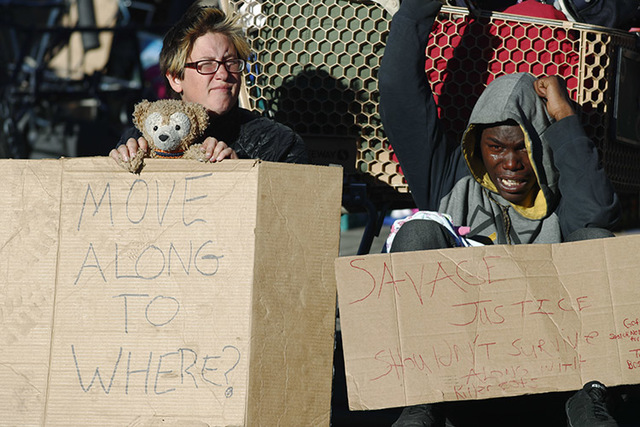 MOVE
ALONG
TO
WHERE?
SAVAGE
JUSTICE
SHOULDN'T SURVIVE
ALONG WITH